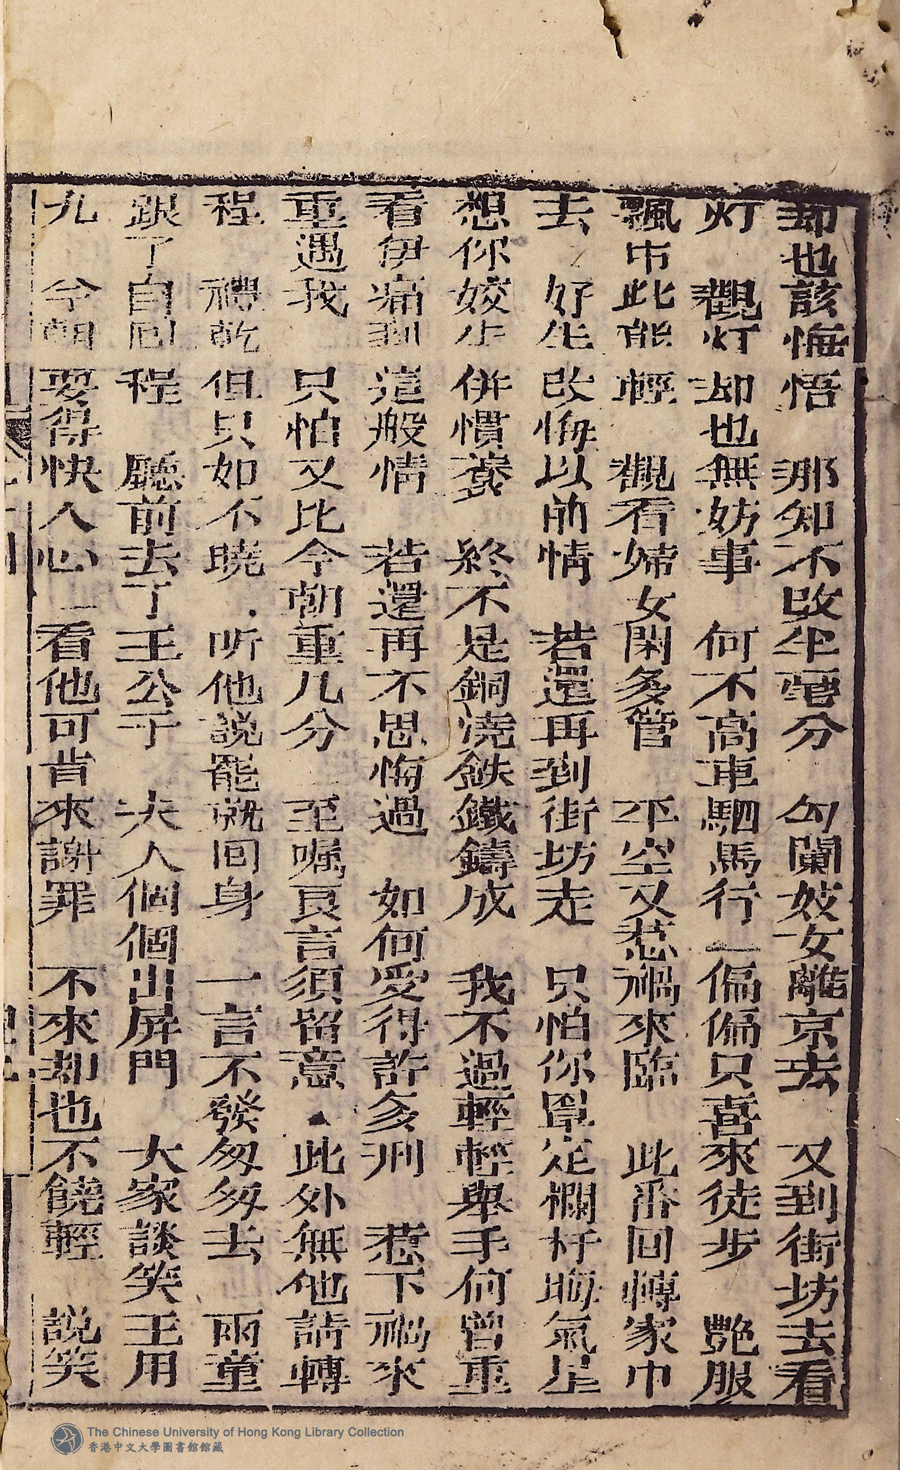 却也該悔悟 那知不改半毫分 勾闌妓女離京去 又到街坊去看
灯 觀灯却也無妨事 何不高車駟馬行 偏偏只喜來徒步 艷服
飄巾此能輕 觀看婦女閑多管 平空又惹禍來臨 此番回轉家中
去 好生改悔以前情 若還再到街坊走 只怕你罩定欄杆晦氣星
想你姣生併慣養 終不是銅澆鉄鐵鑄成 我不過輕輕舉手何曾重
看伊痛到這般情 若還再不思悔過 如何受得許多刑 惹下禍來
重遇我 只怕又比今朝重几分 至嘱良言須留意 此外無他請轉
程 禮乾但只如不曉 听他說罷就回身 一言不發匆匆去 兩童
跟了自回程 廳前去了王公子 夫人個個出屏門 大家談笑王用
九 兮朝耍得快人心 看他可肯來謝罪 不來却也不饒輕 說笑
The Chinese University of Hong Kong Library Collection
香港中文大學圖書館館藏